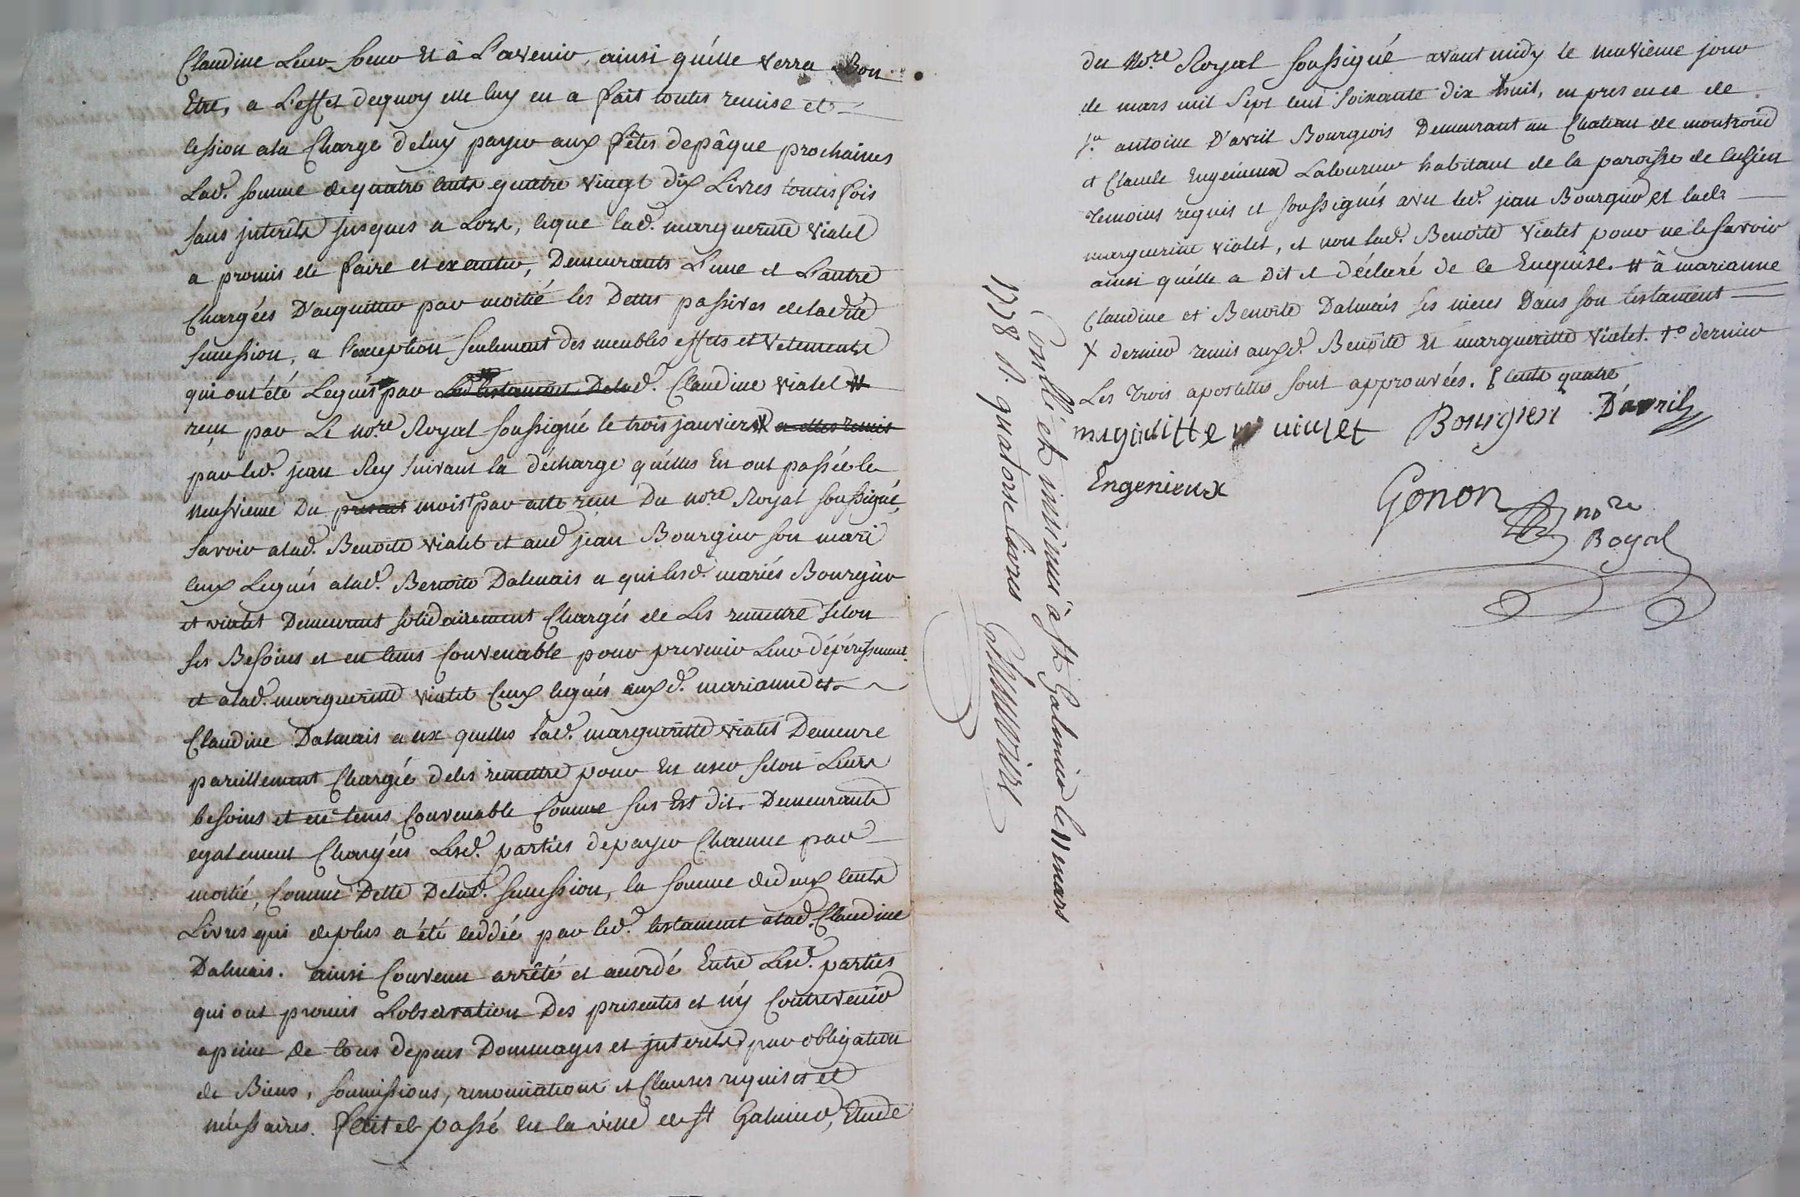 Claudine Leur soeur et à L'avenir, ainsi quélle verra Bon
Etre, a L'effet dequoy elle luy en a fait toutes remise et
cession ala Charge deluy payer aux fêtes depâque prochaines
Lad. somme de quatre cents quatre vingt dix Livres toutes fois
sans jnterets jusques a Lors, ceque lad. margueritte vialet
a promis de faire et executer, Demeurants L'une et L'autre
Chargées D'acquitter par moitié les Dettes passives deladitte
succession, a l'exception seulement des meubles effets et vetements
qui ont été Legués par Claudine vialet #
reçu par Le nore. Royal soussigné le trois janvier X
par led. jean Rey suivant la décharge qu'elles En ont passée le
neufvieme Du mois par acte reçu Du nore. Royal soussigné,
savoir alad. Benoite vialet et aud. jean Bourgier son mari
ceux Legués alad. Benoite Dalmais a qui lesd. mariés Bourgier
et vialet Demeurent solidairement Chargés de Les remettre selon
ses Besoins et en tems Convenable pour prevenir Leur dépérissement.
et alad. margueritte vialet Ceux legués auxd. marianne et
Claudine Dalmais aux quelles lad. margueritte vialet Demeure
pareillement Chargée deles remettre pour En user selon Leurs
besoins et en tems Convenable Comme sus Est dit. Demeurants
egalement Chargées Lesd. parties depayer Chacune par
moitié, Comme Dette Delad. succession, la somme dedeux cents
Livres qui deplus a été leddée par led. testament alad. Claudine
Dalmais. ainsi Convenu arrêté et accordé Entre Lesd. parties
qui ont promis L'observation Des presentes et n'y Contrevenir
apeine de tous depens Dommages et jnterets par obligation
de Biens, soumissions, renonciations et Clauses requises et
nécessaires. fait et passé en la ville de st Galmier, Etude
du Nore. Royal soussigné avant midy le neuvieme jour
de mars mil sept cent soixante dix huit, en presence de
sr. antoine D'avril Bourgeois Demeurant au Chateau de montrond
et Claude Engenieux Laboureur habitant de la paroisse de
temoins requis et soussignés avec led. jean Bourgier et lad.
margueritte vialet, et non lad. Benoite vialet pour ne le savoir
ainsi quélle a dit et déclaré de ce Enquise. # à marianne
Claudine et Benoite Dalmais ses nieces Dans son testament
X dernier remis auxd. Benoite et margueritte vialet. 1° dernier
Les trois apostilles sont approuvées. cents quatre
margueritte vialet Bourgier D'avril
Engenieux
Gonon nore
Royal
Contllé et insinué à st Galmier le 11 mars
1778 R. quatorse livres